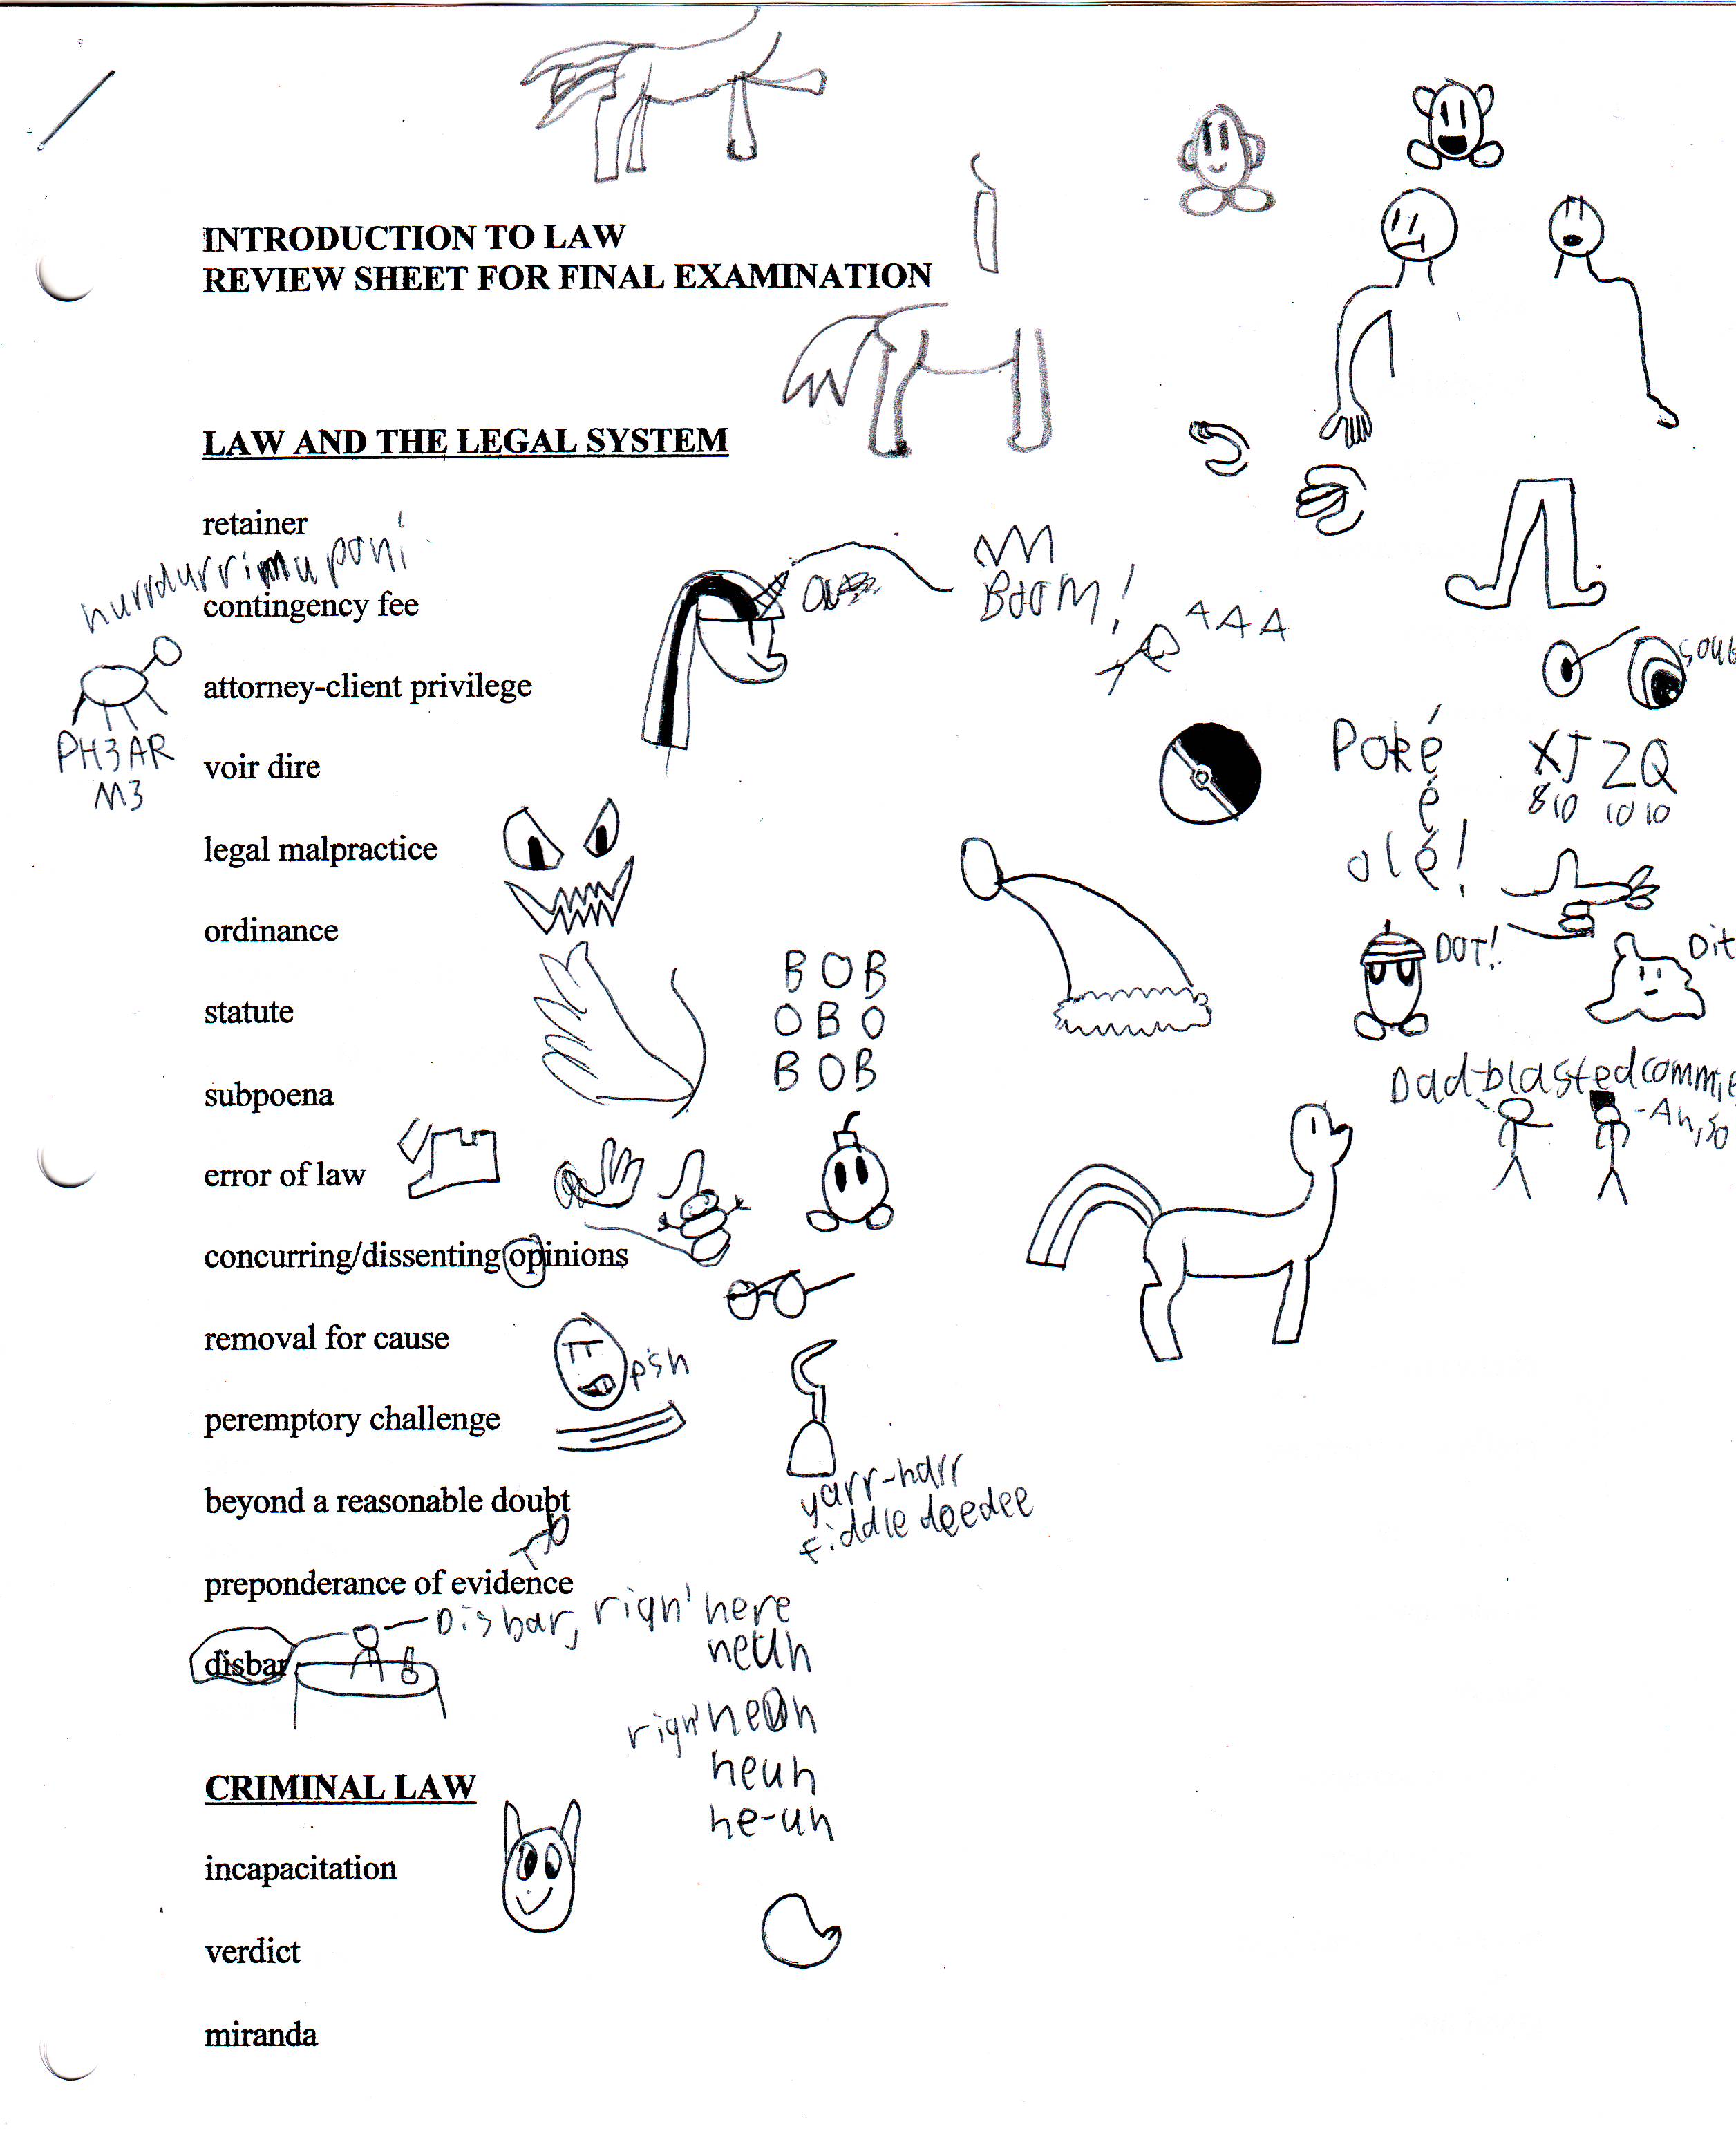 INTRODUCTION TO LAW
REVIEW SHEET FOR FINAL EXAMINATION
LAW AND THE LEGAL SYSTEM
retainer
hurrdurrimuponi
contingency fee
BOOM!
AAA
attorney-client privilege
PH3AR
M3
voir dire
Poké
é
olé!
XJZQ
8 10 10 10
legal malpractice
ordinance
DOT!
BOB
OBO
BOB
statute
subpoena
Dad-blasted commie
-Ah, so
error of law
concurring/dissenting opinions
removal for cause
psh
peremptory challenge
yarr-harr
fiddle deedee
beyond a reasonable doubt
preponderance of evidence
Disbar, righ' here
heuh
disbar
righ' heuh
heuh
he-uh
CRIMINAL LAW
incapacitation
verdict
miranda